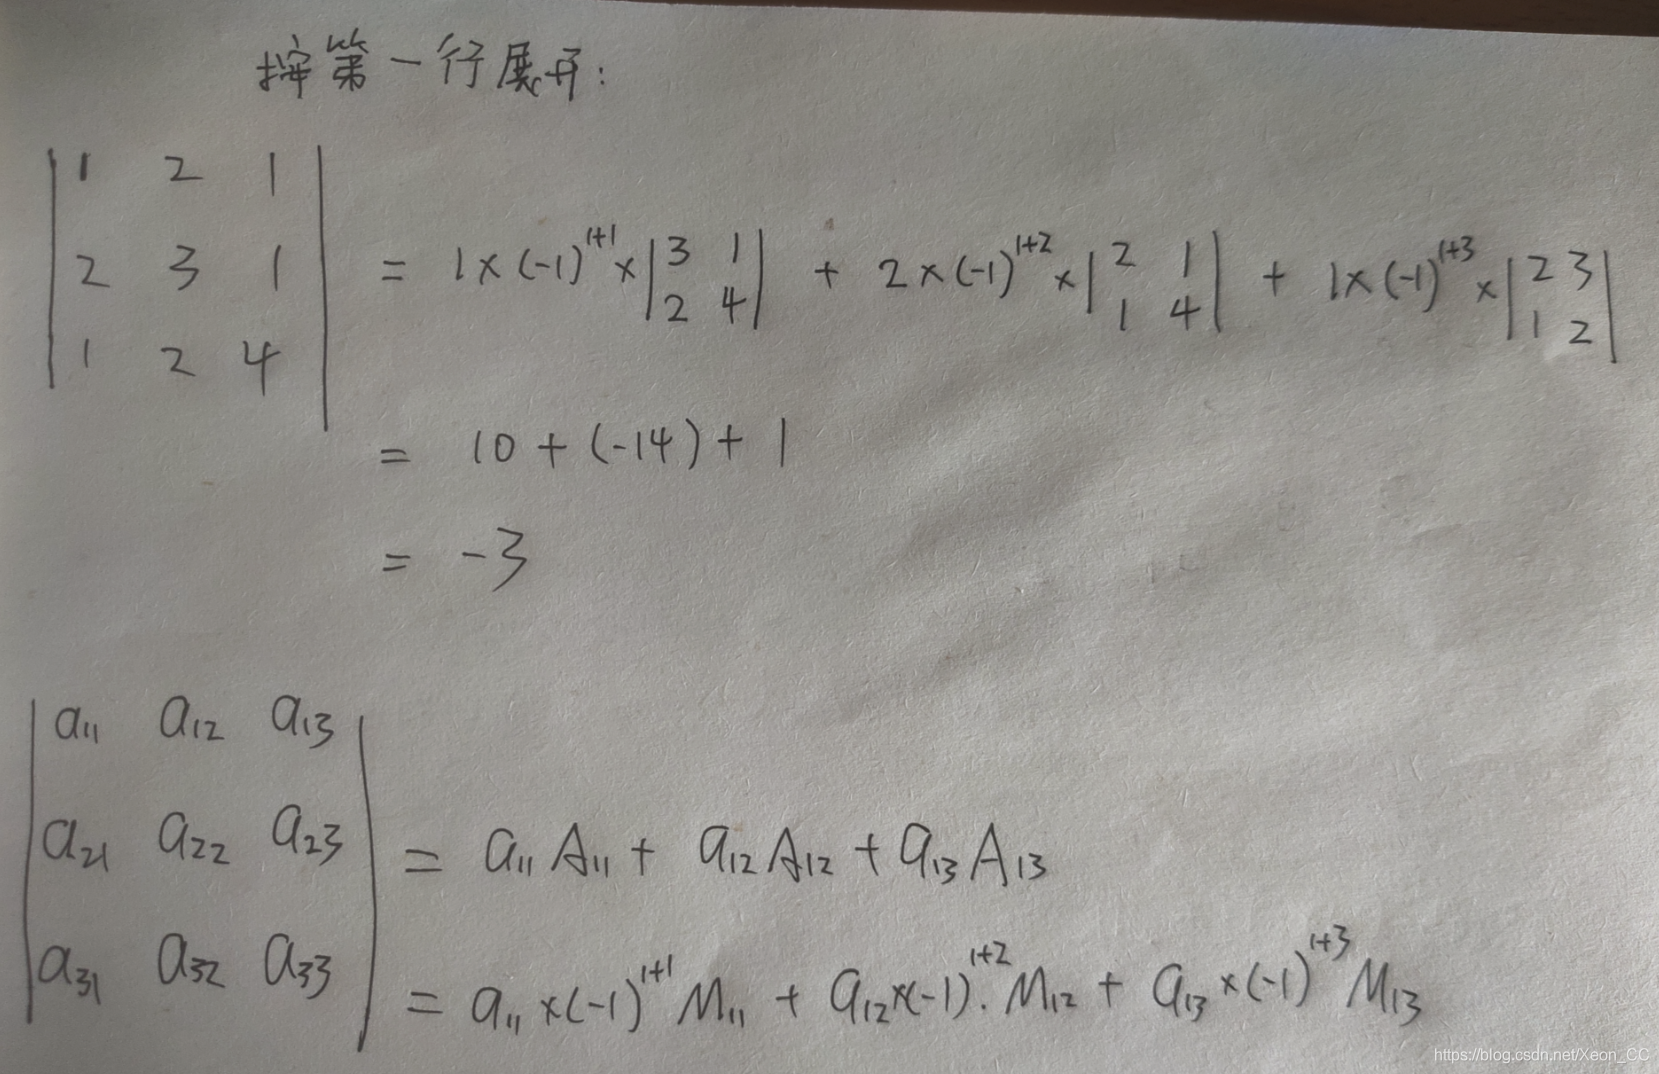 按第一行展开:
1 2 1
2 3 1 = 1×(-1)^{1+1}×|3 1| + 2×(-1)^{1+2}×|2 1| + 1×(-1)^{1+3}×|2 3|
|2 4| |1 4| |1 2|
1 2 4
= 10 + (-14) + 1
= -3
a₁₁ a₁₂ a₁₃
a₂₁ a₂₂ a₂₃ = a₁₁A₁₁ + a₁₂A₁₂ + a₁₃A₁₃
a₃₁ a₃₂ a₃₃ = a₁₁×(-1)^{1+1}M₁₁ + a₁₂×(-1)^{1+2}·M₁₂ + a₁₃×(-1)^{1+3}M₁₃
https://blog.csdn.net/Xeon_CC